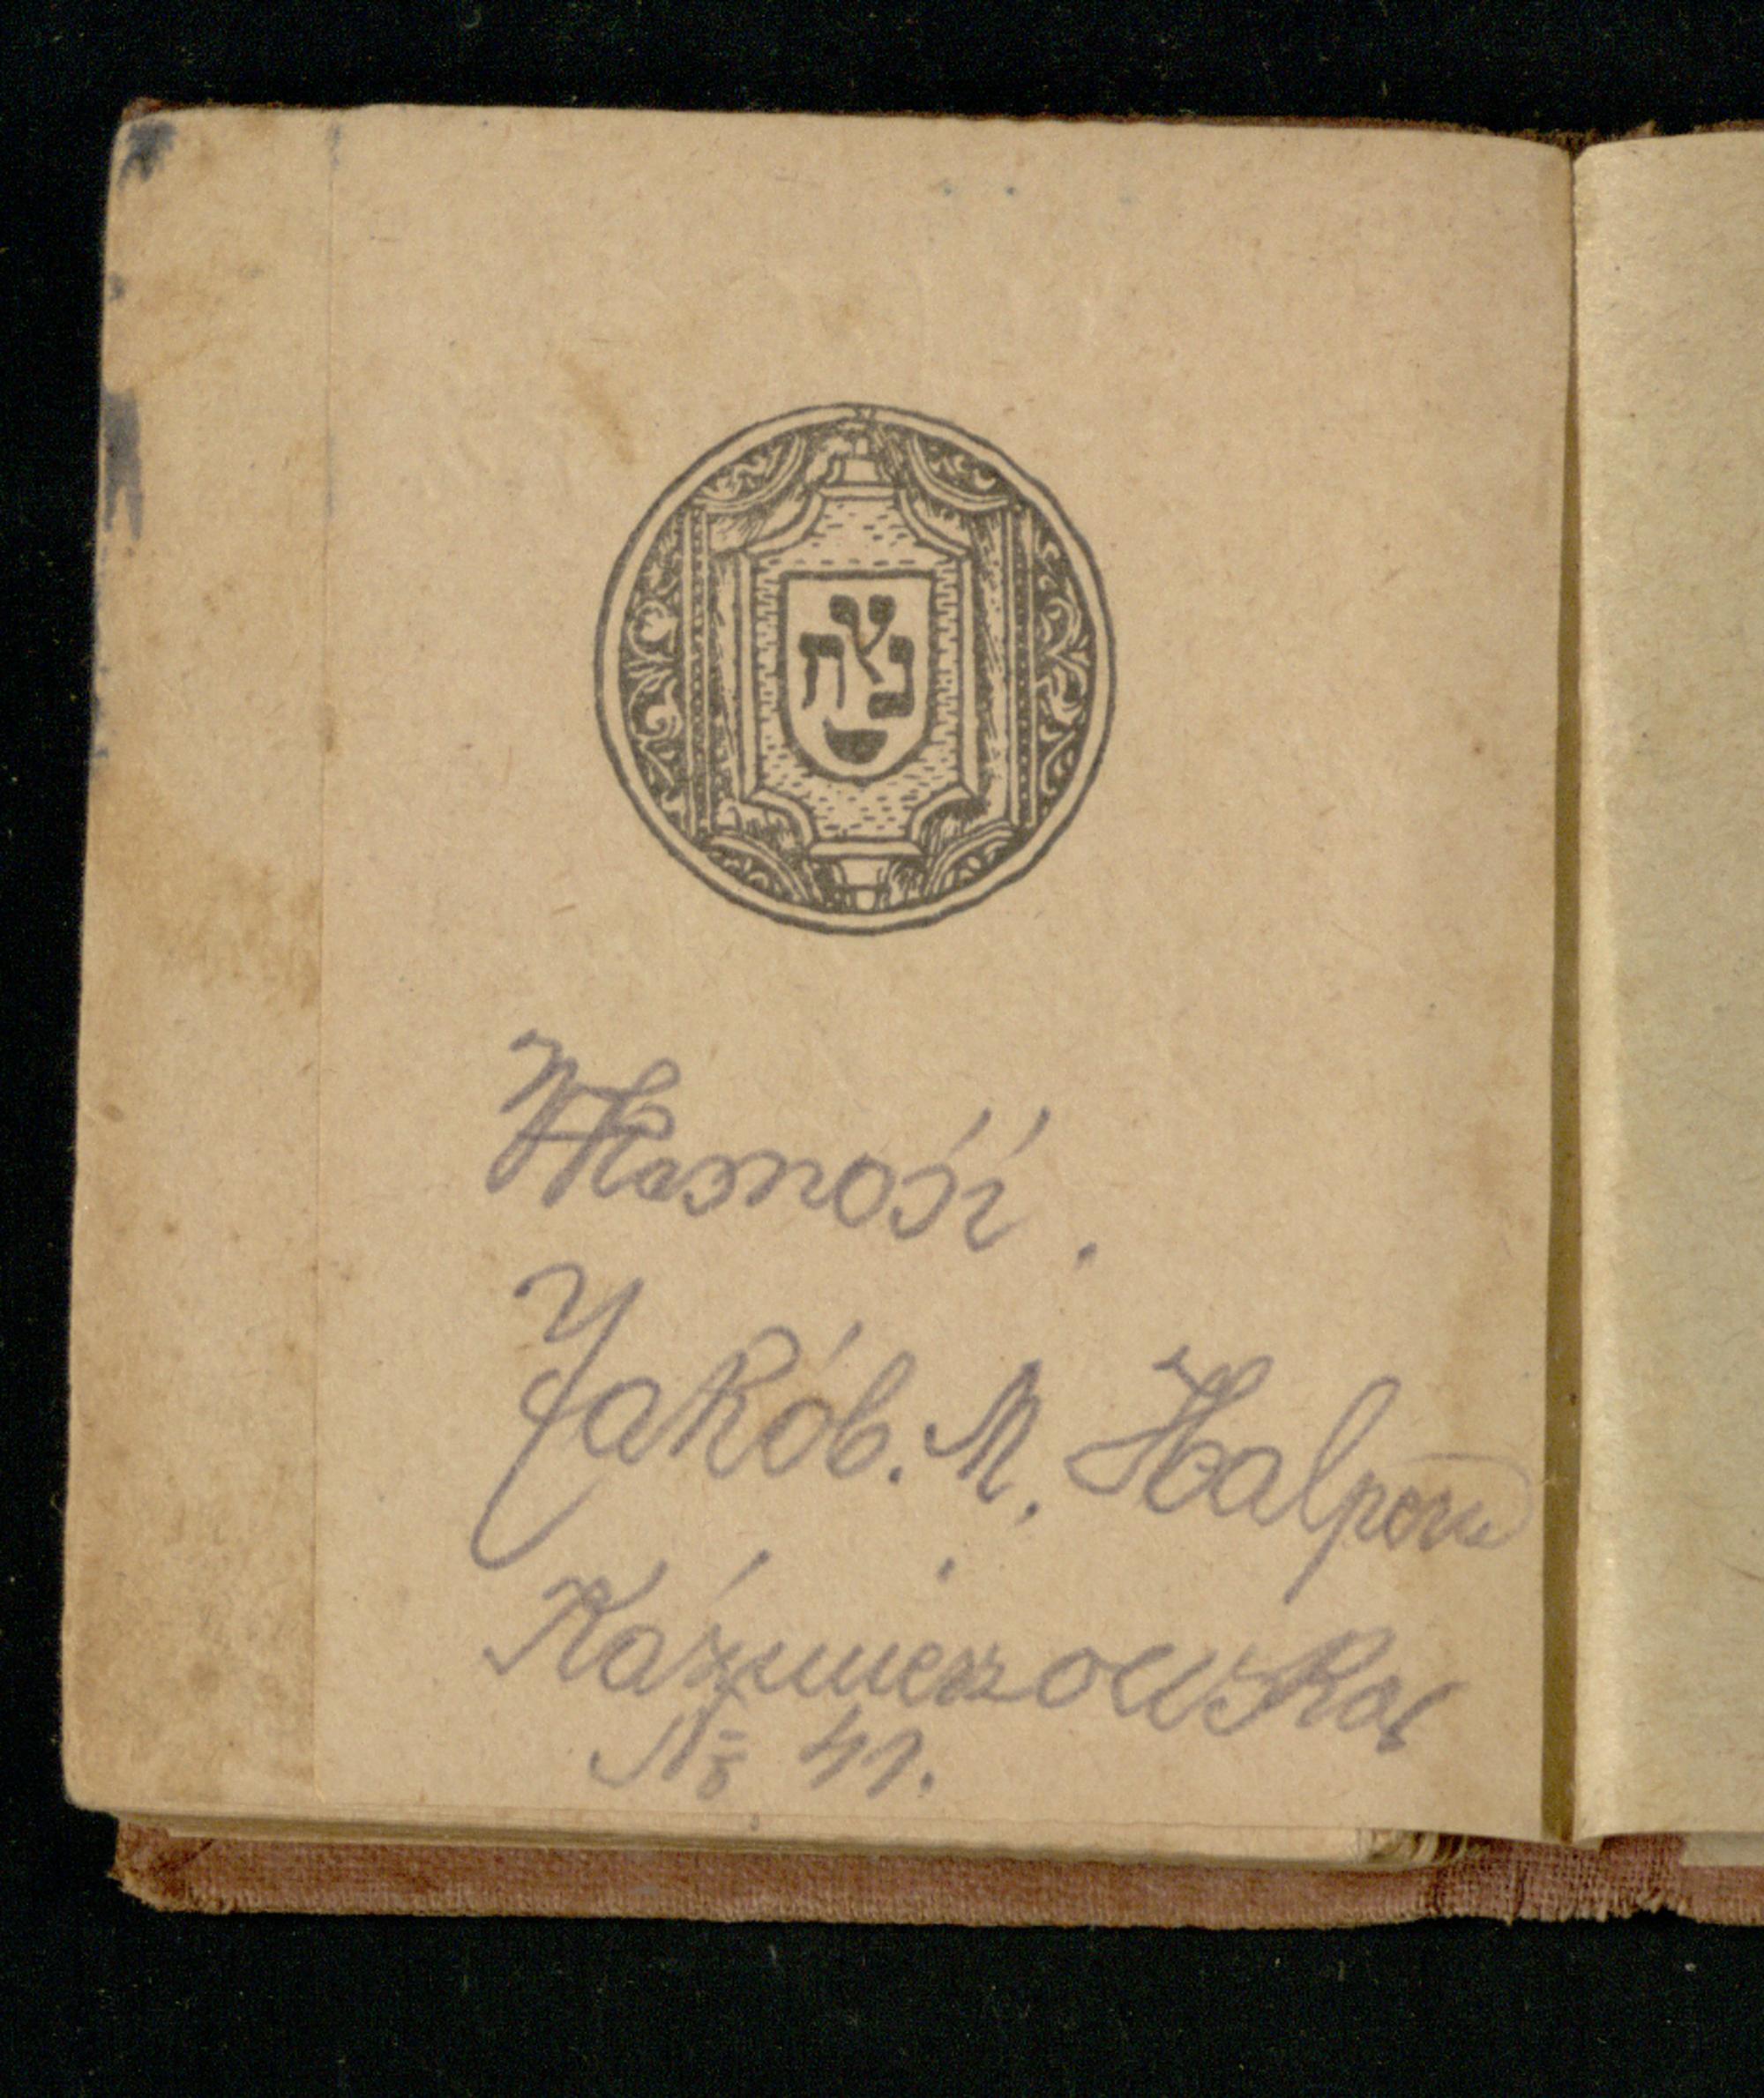 נצח
Własność.
Jakób. M. Halpern
Kaźmierzowska
№ 41.